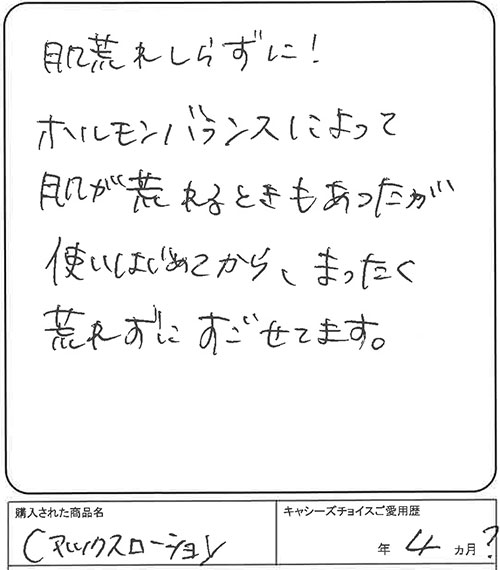 肌荒れしらずに！
ホルモンバランスによって
肌が荒れるときもあったが
使いはじめてから、まったく
荒れずにすごせてます。
購入された商品名
Cマックスローション
キャシーズチョイスご愛用歴
年 4 カ月？